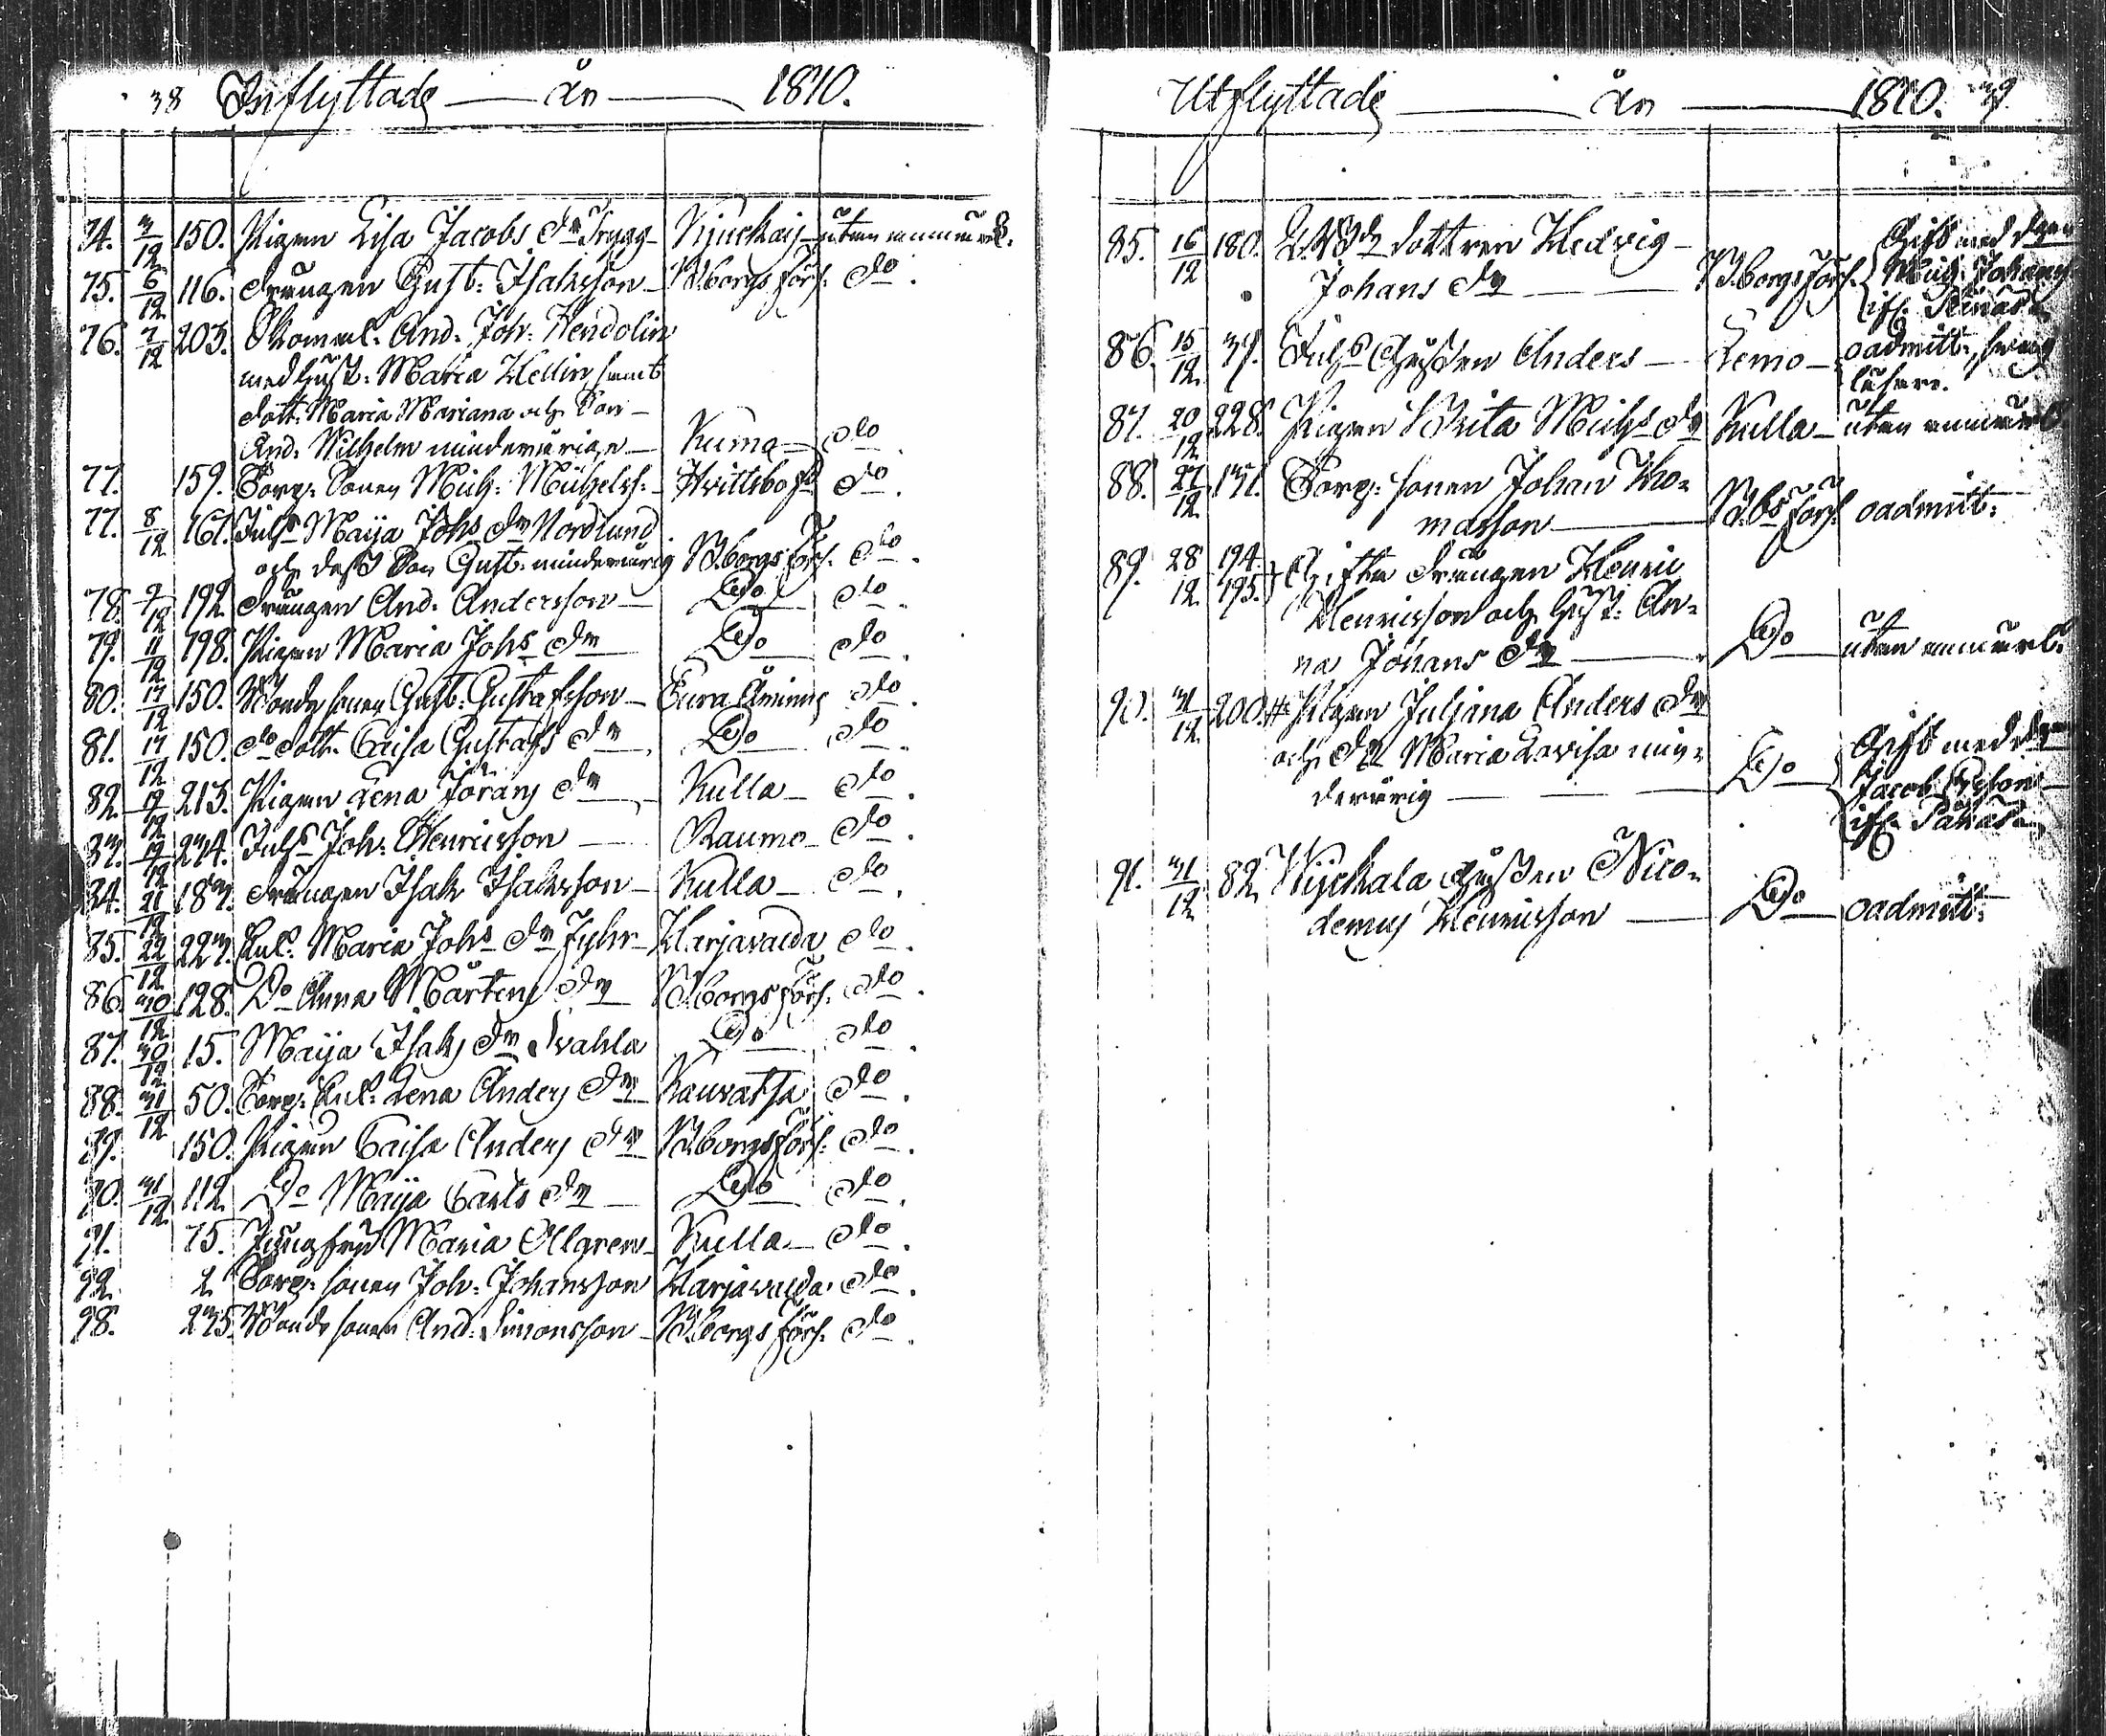 38 Inflyttade — år — 1810.
74. 3/12 150. Pigan Lisa Jacobs dr Trygg — Kjuckais — utan anmärk.
75. 6/12 116. drängen Gust. Isaksson — B.borgs förs. do.
76. 7/12 203. Skomak. And. Joh. Hendolin
med hust. Maria Hellin samt
dott. Maria Mariana och Son
And. Wilhelm minderårige — Kumo — do
77. 159. Torp. Sonen Mich. Michelss. — Hvittisbofd do.
77. 8/12 161. Inhs Maija Johs dr Nordlund
och dess Son Gust. minderårig B.borgs förs. do.
78. 9/12 192. drängen And. Andersson — Do do.
79. 11/12 198. Pigan Maria Johs dr — Do do.
80. 17/12 150. Bonde sonen Gust. Gustafsson — Eura Åminne do.
81. 17/12 150. do dott. Caisa Gustafs dr — Do do.
82. 19/12 213. Pigan Lena Jörans dr — Kulla — do.
83. 19/12 234. Inhs Joh. Henricsson — Raumo — do.
84. 21/12 183. drängen Isak Isaksson — Kulla — do.
85. 22/12 223. Enk. Maria Johs dr Fyhr — Harjavalda do.
86. 30/12 128. Do Anna Mårtens dr B.borgs förs. do.
87. 30/12 15. Maija Isaks dr Svahla Do do.
88. 31/12 50. Torp. Enk. Lena Anders dr — Kauvatsa do.
89. 150. Pigan Caisa Anders dr B.borgs förs. do.
90. 31/12 112. Do Maija Carls dr — Do do.
91. 75. Jungfru Maria Allgren — Kulla — do.
92. 2 Torp. sonen Joh. Johansson Harjavalda do.
98. 235. Bonde sonen And. Simonsson — B.borgs förs. do.
Utflyttade — år — 1810. 39.
85. 16/12 180. dottren Hedvig —
Johans dr — B.borgs förs.
Gift med
Mich. Johans
86. 15/12 37. Inhs Gossen Anders — Lemo — oadmitt. svag
läsare.
87. 20/12 228. Pigan Brita Michs dr Kulla — utan anmärk
88. 27/12 131. Torp. sonen Johan Tho-
masson — B.bs förs. oadmitt.
89. 28/12 194. 195. Gifte drängen Henric
Henricsson och hust. An-
na Johans dr — Do utan anmärk.
90. 31/12 200. # Pigan Juliana Anders dr
och dr Maria Lovisa min-
derårig — Do
Gift med
Jacob
91. 31/12 82. Wijckala Gossen Nico-
demus Henricsson — Do — oadmitt.